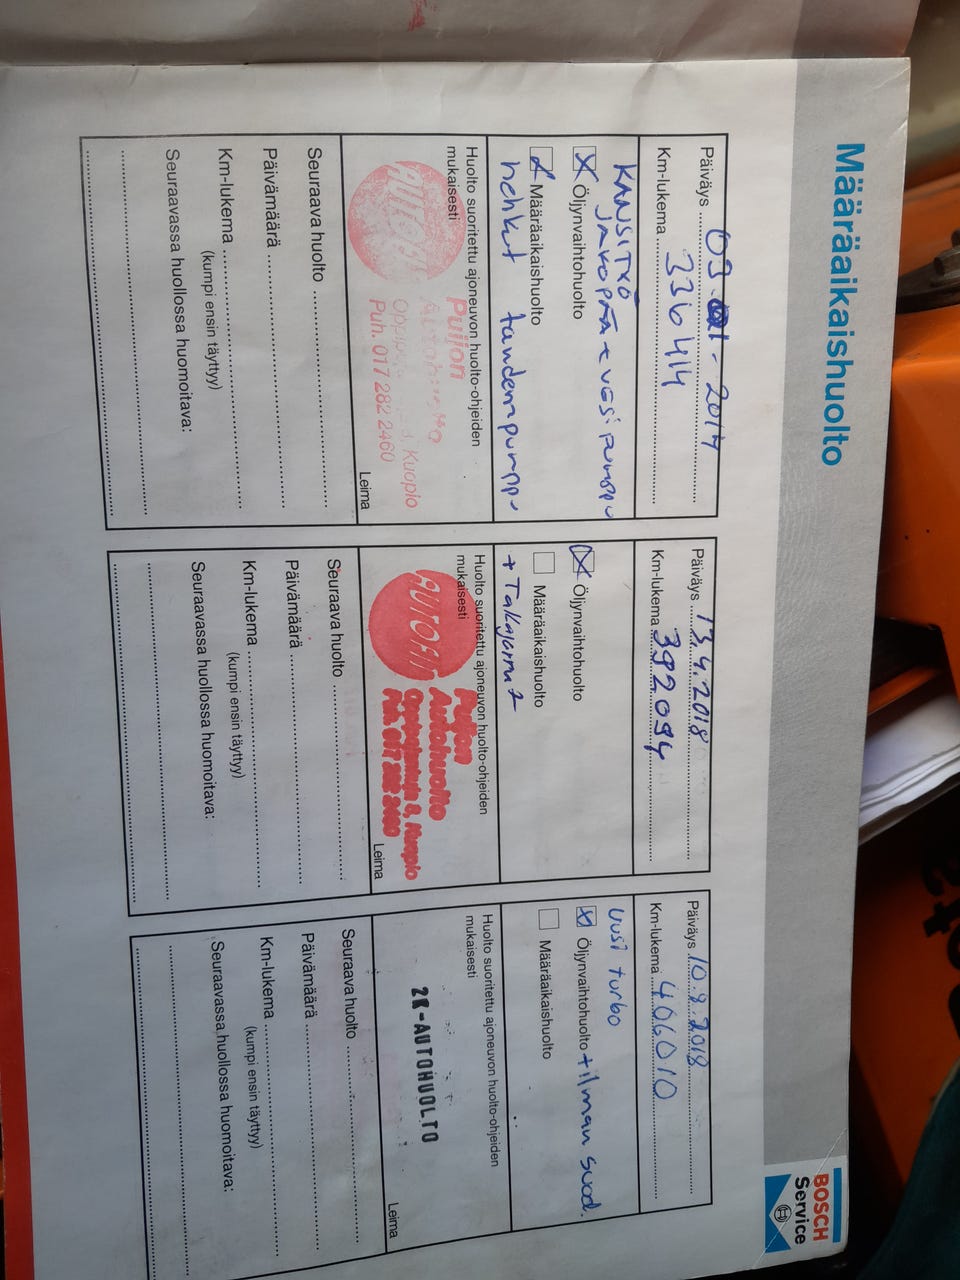 Määräaikaishuolto
BOSCH
Service
Päiväys 09.01.2014
Km-lukema 336414
KANSITKO
JAKOPÄÄ + VESIPUMPPU
Öljynvaihtohuolto
Määräaikaishuolto
hehkut tandempumppu
Huolto suoritettu ajoneuvon huolto-ohjeiden
mukaisesti
Puijon
Autohuolto
Kuopio
Puh. 017 282 2460
Leima
Seuraava huolto
Päivämäärä
Km-lukema
(kumpi ensin täyttyy)
Seuraavassa huollossa huomoitava:
Päiväys 13.4.2018
Km-lukema 392094
Öljynvaihtohuolto
Määräaikaishuolto
+ Takajarru
Huolto suoritettu ajoneuvon huolto-ohjeiden
mukaisesti
AUTOFIT
Puijon
Autohuolto
Kuopio
Puh. 017 282 2460
Leima
Seuraava huolto
Päivämäärä
Km-lukema
(kumpi ensin täyttyy)
Seuraavassa huollossa huomoitava:
Päiväys 10.8.2018
Km-lukema 406010
uusi turbo
Öljynvaihtohuolto + ilman suod.
Määräaikaishuolto
Huolto suoritettu ajoneuvon huolto-ohjeiden
mukaisesti
2K-AUTOHUOLTO
Leima
Seuraava huolto
Päivämäärä
Km-lukema
(kumpi ensin täyttyy)
Seuraavassa huollossa huomoitava: